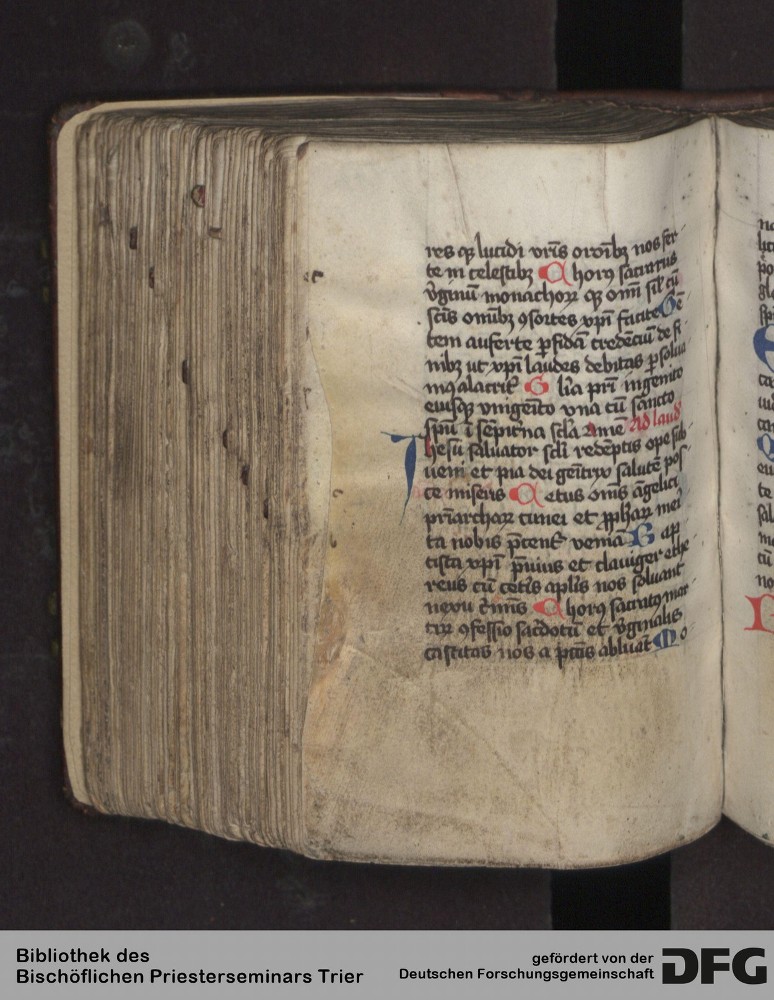 res q̄ lucidi vr̄is oror̄ibꝫ nos fer
te in celestibꝫ Chorꝰ sacratus
v̄ginū monachoꝝ q̄ om̄i sil' cū
sc̄is om̄ibꝫ ꝯsortes xp̄i facite Gē
tem auferte ꝑfidā credēciū de fi
nibꝫ ut xp̄i laudes debitas ꝑsolua
mꝰ alacrit' Glīa pr̄i ingenito
eiusqꝫ vnigeīto vna cū sancto
spū ī sēpit'na sc̄la amē Ad laud'
Jhesu saluator sc̄li redēptis ope sub
ueni et pia dei gēitrix salutē pos
ce miseris Cetus om̄is āgelici
pr̄iarchaꝝ cunei et ꝓph'aꝝ mei
ta nobis p̄cent' veniā Bap
tista xp̄i p̄uius et clauiger ethe
reus cū cet'is ap̄lis nos soluant
nexu c̄mīs Chorꝰ sacratꝰ mar
tiꝝ ꝯfessio sac̄dotū et v̄ginalis
castitas nos a pc̄tis abluāt Mo
Bibliothek des
Bischöflichen Priesterseminars Trier
gefördert von der
Deutschen Forschungsgemeinschaft
DFG